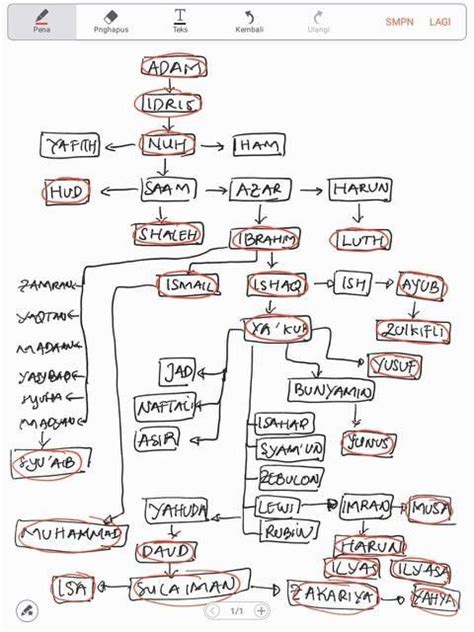 Pena Pnghapus Teks Kembali Ulangi SMPN LAGI
ADAM
IDRIS
YAFITH NUH HAM
HUD SAAM AZAR HARUN
SHALEH IBRAHM LUTH
ZAMRAN ISMAIL ISHAQ ISH AYUB
YAQTAN YA'KUB ZULKIFLI
MADAAN JADI YUSUF
NAFTALI BUNYAMIN
MADYAN ASIR ISAHAR YUNUS
SYU'AIB SYAM'UN
ZEBULON
YAHUDA LEWI IMRAN MUSA
MUHAMMAD RUBIN
DAUD HARUN
ILYAS ILYASA
ISA SULAIMAN ZAKARIYA YAHYA
1/1